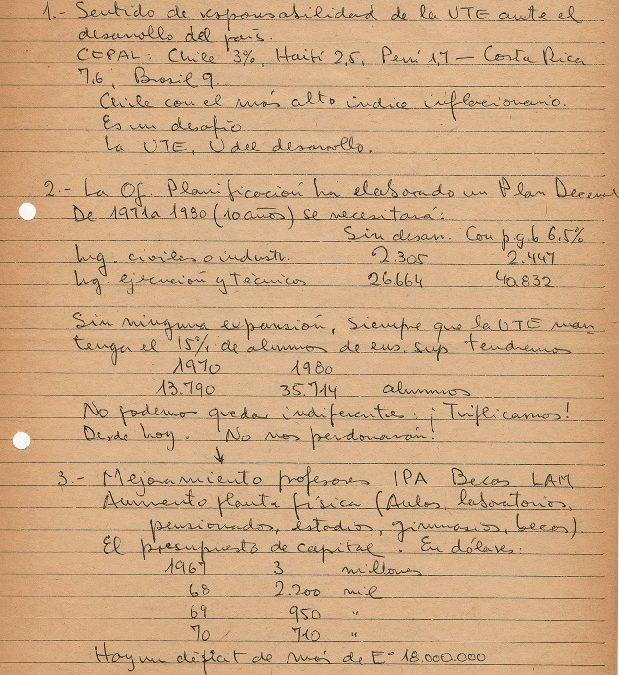 1.- Sentido de responsabilidad de la UTE ante el
desarollo del país.
CEPAL: Chile 3%, Haití 2,5, Perú 1,7 — Costa Rica
7,6, Brasil 9.
Chile con el más alto índice inflacionario.
Es un desafío
La UTE, U del desarrollo.
2.- La Of. Planificación ha elaborado un Plan Decenal
De 1971 a 1980 (10 años) se necesitará:
Sin desarr. Con p.g.b 6,5%
Ing. civiles o industr. 2.305 2.447
Ing. ejecución y técnicos 26.664 40.832
Sin ninguna expansión, siempre que la UTE man-
tenga el 15% de alumnos de ens. sup tendremos
1970 1980
13.790 35.714 alumnos
No podemos quedar indiferentes: ¡Triplicamos!
Desde hoy. No nos perdonarán!
↓
3.- Mejoramiento profesores IPA Becas LAM
Aumento planta física (Aulas, laboratorios,
pensionados, estadios, gimnasios, becas)
El presupuesto de capital. En dólares:
1967 3 millones
68 2.200 mil
69 950 "
70 710 "
Hay un déficit de más de Eº 18.000.000